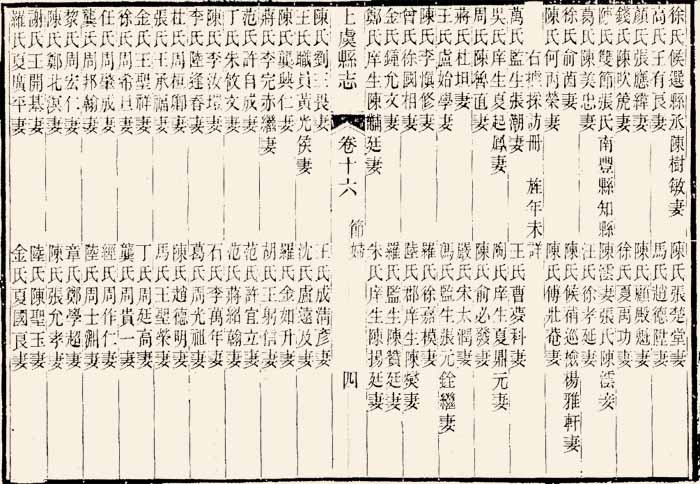 徐氏候選縣丞陳樹敏妻　陳氏張楚堂妻
高氏王有良妻　馬氏趙德陞妻
顏氏張應緯妻　陳氏顧殿魁妻
錢氏陳吹箎妻　徐氏夏禹功妻
陳氏雙節張氏南豐縣知縣陳澐妻張氏陳澐妾
葛氏陳美忠妻　汪氏徐孝延妻
徐氏俞茵妻　陳氏候補巡檢楊雅軒妻
陳氏何丙榮妻　陳氏傅壯菴妻
右據採訪冊　旌年未詳
萬氏監生張潮妻　王氏曹蓤科妻
吳氏庠生夏起鳳妻　陶氏庠生夏鼎元妻
周氏陳魯直妻　陳氏俞必發妻
蔣氏杜坦妻　嚴氏宋太潤妻
王氏盧始學妻　馮氏監生張元銓繼妻
陳氏李愼修妻　羅氏徐嘉模妻
曾氏徐國相妻　陸氏郡庠生陳燮妻
金氏鍾允文妻　羅氏監生陳贊廷妻
鄭氏庠生陳黼廷妻　朱氏庠生陳揚廷妻
上虞縣志　卷十六　節婦　四
陳氏劉三畏妻　王氏成淸彥妻
王氏職員黃光侯妻　沈氏盧遠及妻
陳氏龔興仁妻　羅氏金如升妻
蔣氏李完赤繼妻　胡氏王躬信妻
范氏許自成妻　范氏許宜立妻
丁氏朱攸文妻　范氏蔣紹翰妻
陳氏李汝璒妻　石氏李萬年妻
李氏陸逢春妻　葛氏周光祖妻
杜氏周桓卿妻　陳氏趙德明妻
張氏王承福妻　馬氏王聖榮妻
金氏王聖祥妻　丁氏周廷高妻
徐氏周希旦妻　龔氏周貴一妻
任氏周肇成妻　經氏周作仁妻
龔氏周邦翰妻　陸氏周士剸妻
黎氏周宏仁妻　章氏鄭學超妻
陳氏鄭北溟妻　陳氏張允孝妻
謝氏王開基妻　陸氏陳聖玉妻
羅氏夏廣平妻　金氏夏國良妻